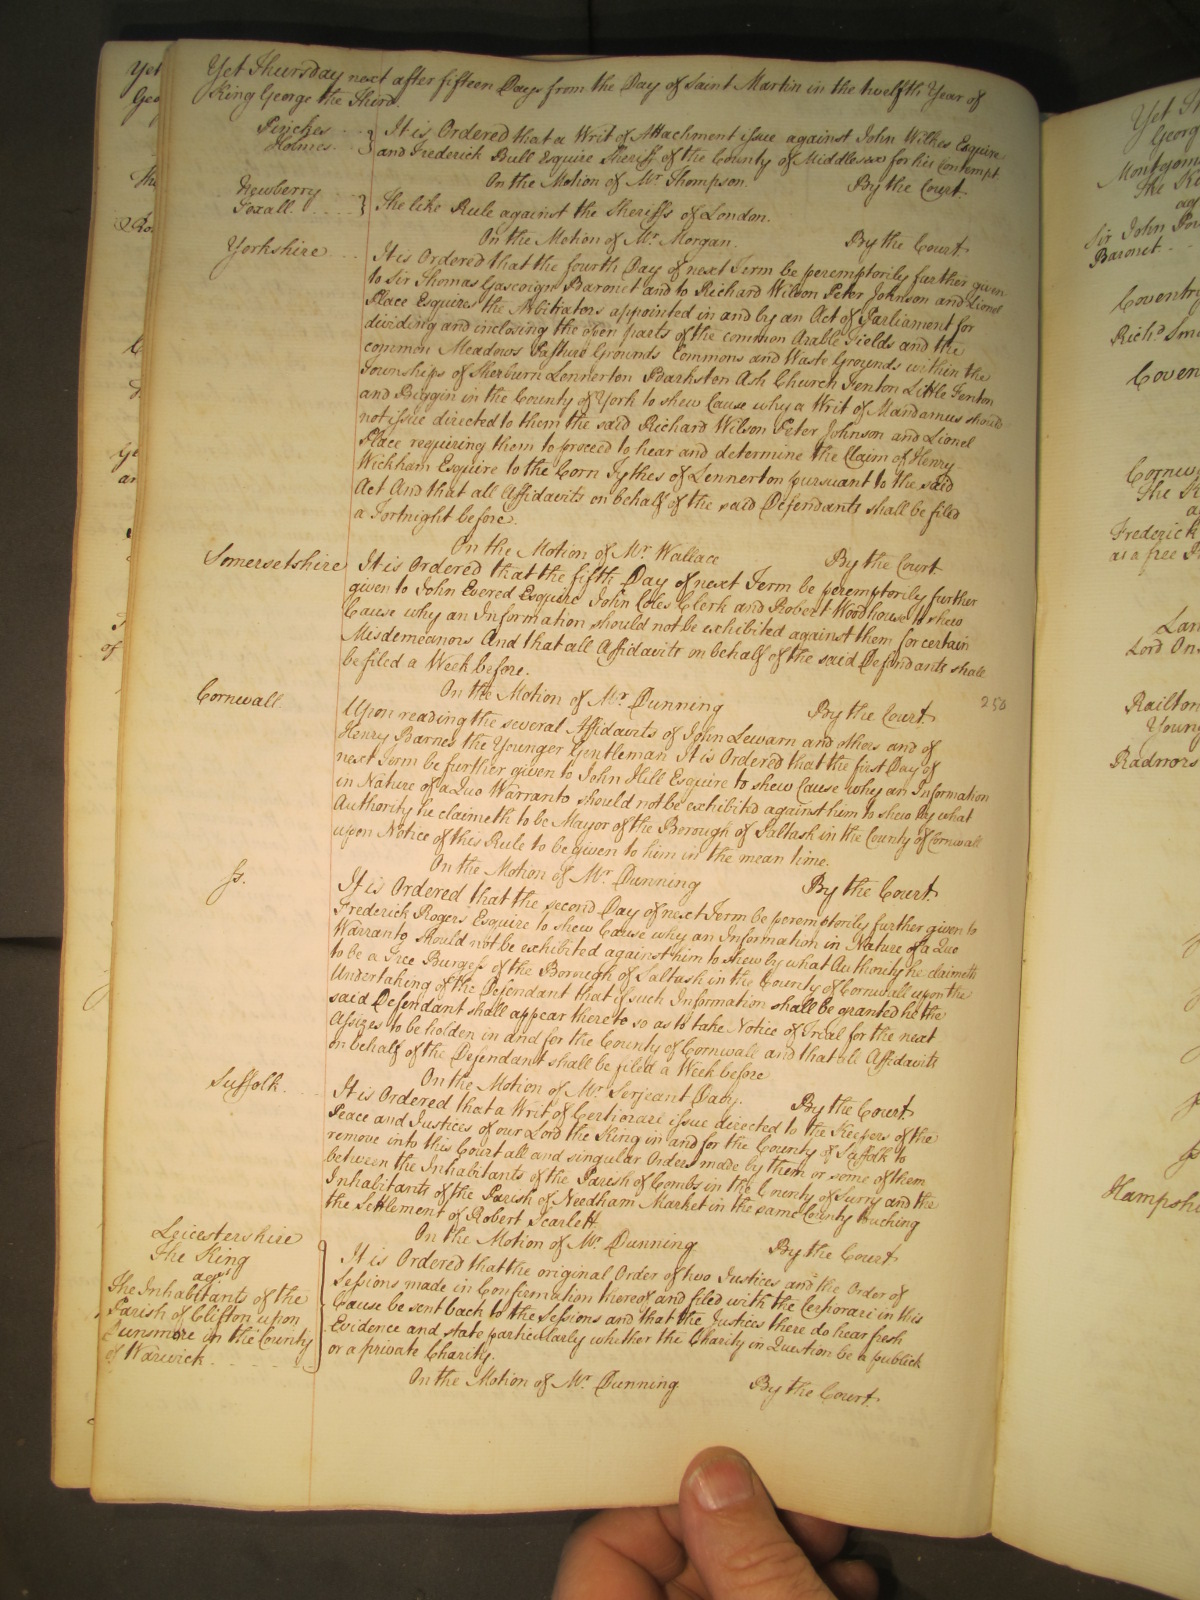 Yet Thursday next after fifteen Days from the Day of Saint Martin in the twelfth Year of
King George the Third.
Pinches
Holmes
It is Ordered that a Writ of Attachment issue against John Wilkes Esquire
and Frederick Bull Esquire Sheriff of the County of Middlesex for his Contempt
On the Motion of Mr. Thompson. By the Court
Newberry
Foxall
The like Rule against the Sheriffs of London.
On the Motion of Mr. Morgan. By the Court
Yorkshire
It is Ordered that the fourth Day of next Term be peremptorily further given
to Sir Thomas Gascoign Baronet and to Richard Wilson Peter Johnson and Lionel
Place Esquires the Arbitrators appointed in and by an Act of Parliament for
dividing and inclosing the open parts of the common Arable Fields and the
common Meadows Pasture Grounds Commons and Waste Grounds within the
Townships of Sherburn Lennerton Barkston Ash Church Fenton Little Fenton
and Biggin in the County of York to shew Cause why a Writ of Mandamus should
not issue directed to them the said Richard Wilson Peter Johnson and Lionel
Place requiring them to proceed to hear and determine the Claim of Henry
Wickham Esquire to the Corn Tythes of Lennerton pursuant to the said
Act And that all Affidavits on behalf of the said Defendants shall be filed
a Fortnight before.
On the Motion of Mr. Wallace By the Court
Somersetshire
It is Ordered that the fifth Day of next Term be peremptorily further
given to John Evered Esquire John Coles Clerk and Robert Woodhouse to shew
Cause why an Information should not be exhibited against them for certain
Misdemeanors And that all Affidavits on behalf of the said Defendants shall
be filed a Week before.
On the Motion of Mr. Dunning By the Court
250
Cornwall
Upon reading the several Affidavits of John Lewarn and others and of
Henry Barnes the Younger Gentleman It is Ordered that the first Day of
next Term be further given to John Hill Esquire to shew Cause why an Information
in Nature of a Quo Warranto should not be exhibited against him to shew by what
Authority he claimeth to be Mayor of the Borough of Saltash in the County of Cornwall
upon Notice of this Rule to be given to him in the mean time.
On the Motion of Mr. Dunning By the Court
ss.
It is Ordered that the second Day of next Term be peremptorily further given to
Frederick Rogers Esquire to shew Cause why an Information in Nature of a Quo
Warranto should not be exhibited against him to shew by what Authority he claimeth
to be a Free Burgess of the Borough of Saltash in the County of Cornwall upon the
Undertaking of the Defendant that if such Information shall be granted he the
said Defendant shall appear thereto so as to take Notice of Trial for the next
Assizes to be holden in and for the County of Cornwall and that all Affidavits
on behalf of the Defendant shall be filed a Week before
On the Motion of Mr. Serjeant Davy. By the Court
Suffolk
It is Ordered that a Writ of Certiorari issue directed to the Keepers of the
Peace and Justices of our Lord the King in and for the County of Suffolk to
remove into this Court all and singular Orders made by them or some of them
between the Inhabitants of the Parish of Combs in the County of Surry and the
Inhabitants of the Parish of Needham Market in the same County touching
the Settlement of Robert Scarlett
On the Motion of Mr. Dunning By the Court
Leicestershire
The King
agt.
The Inhabitants of the
Parish of Clifton upon
Dunsmore in the County
of Warwick
It is Ordered that the original Order of two Justices and the Order of
Sessions made in Confirmation thereof and filed with the Certiorari in this
Cause be sent back to the Sessions and that the Justices there do hear fresh
Evidence and state particularly whether the Charity in Question be a publick
or a private Charity.
On the Motion of Mr. Dunning By the Court
Yet
George
The
Sir John
Baronet
Coventry
Richd.
Coven
Cornwa
The
Frederick
as a free
Lan
Lord
Railton
Young
Radnors
ss
Hampshi